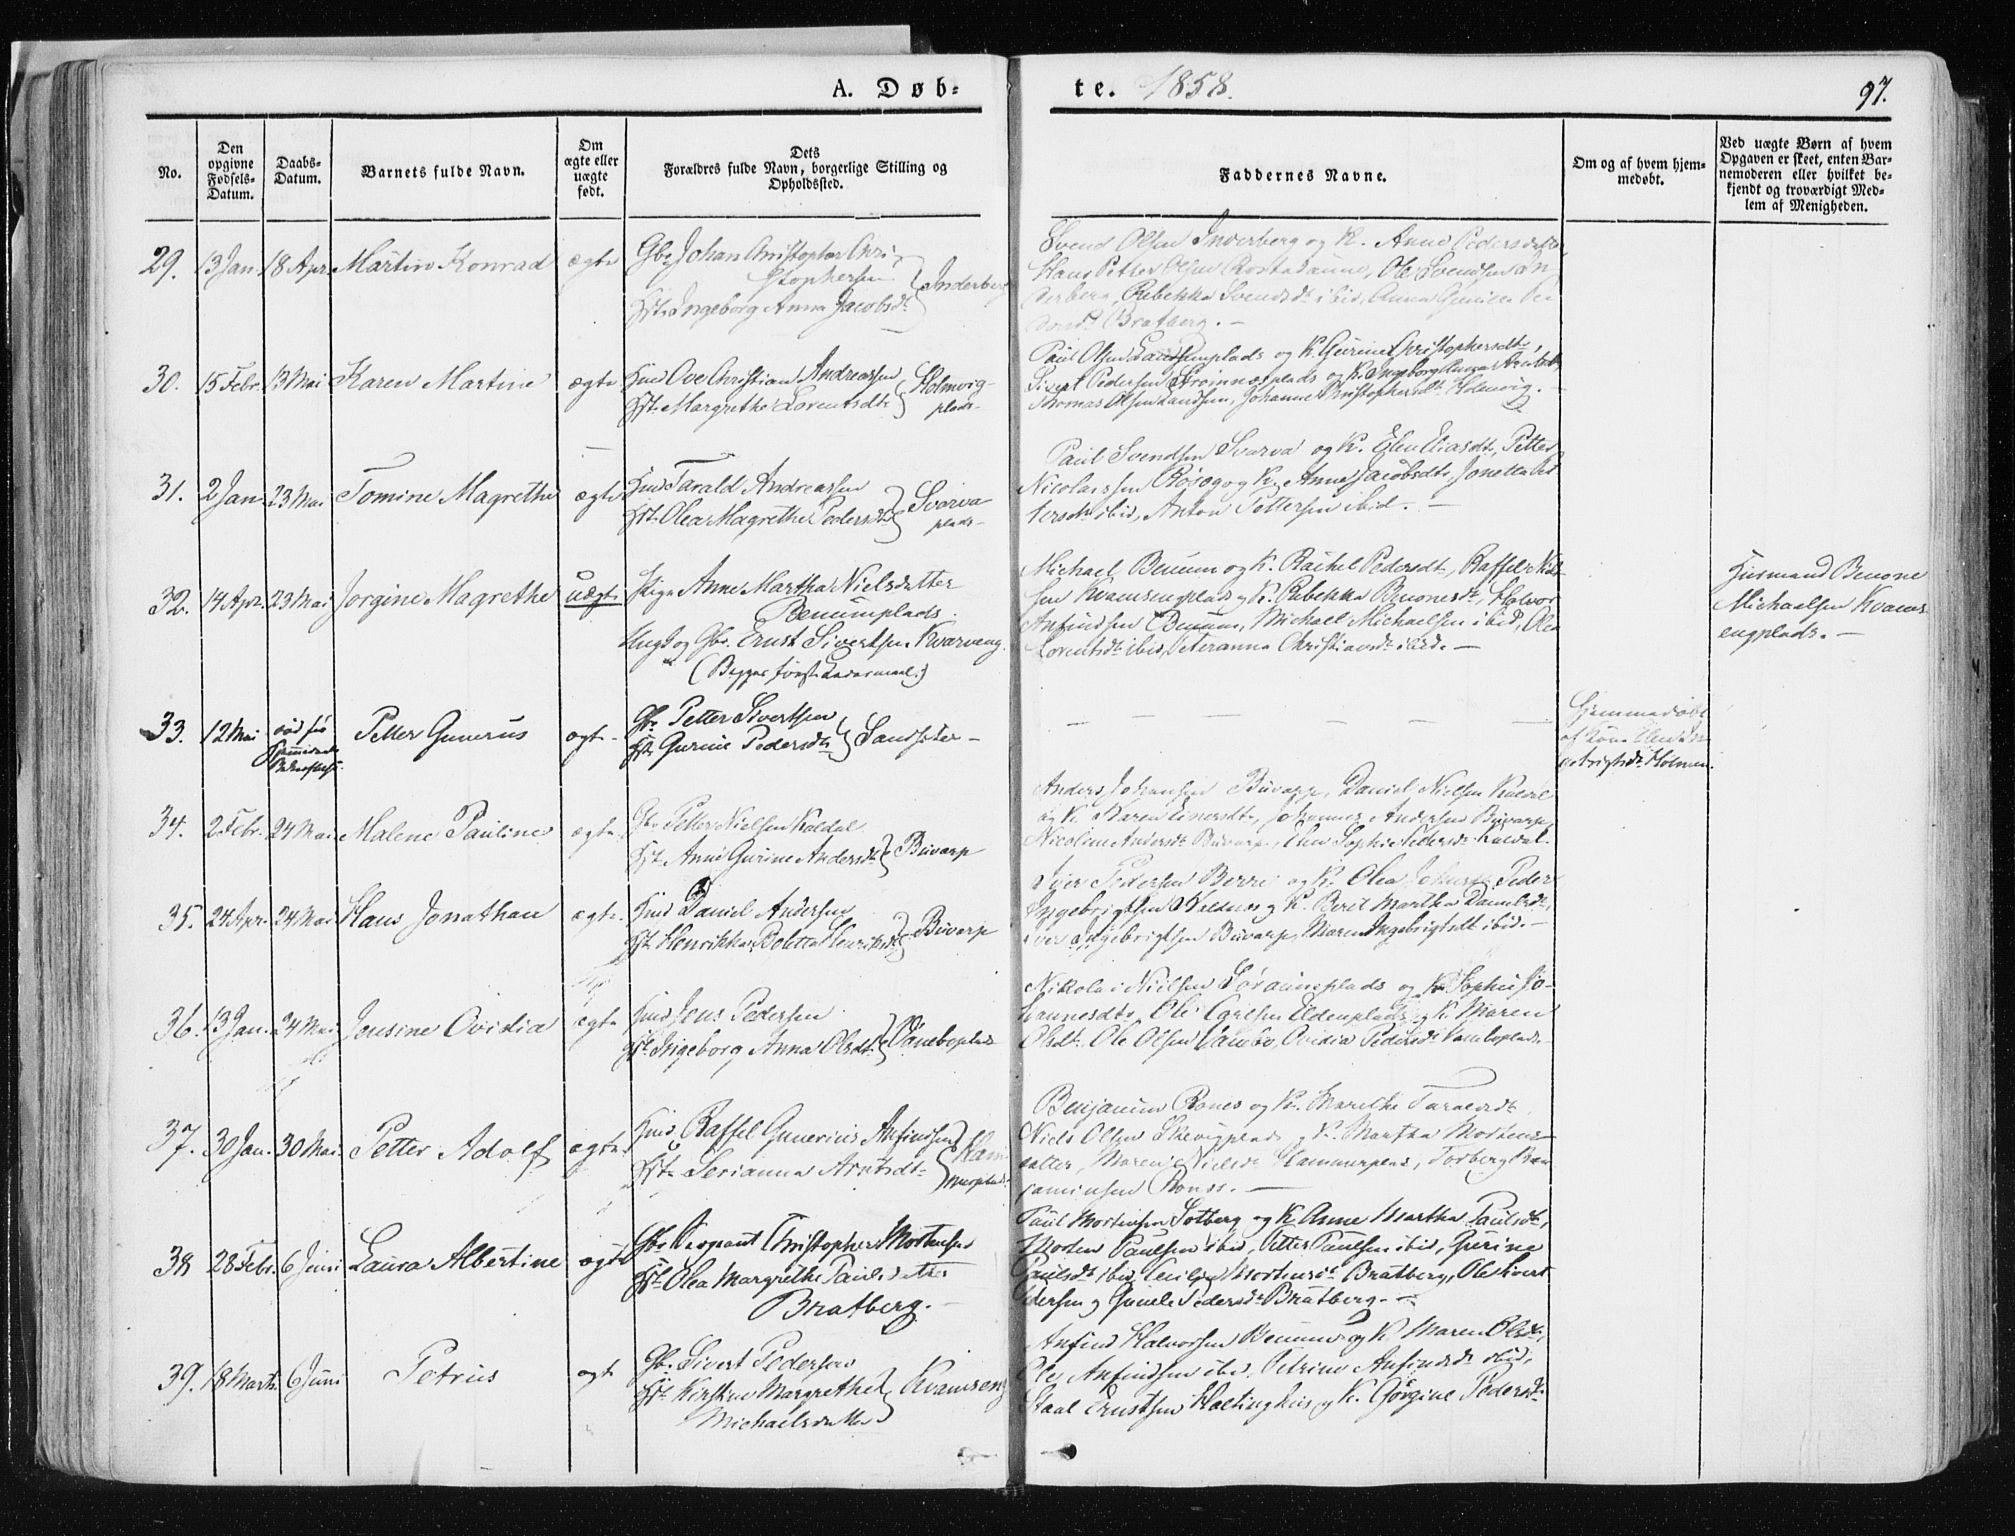 A. Døb-
te. 1858.
97.
No.
Den opgivne Fødsels-Datum.
Daabs-Datum.
Barnets fulde Navn.
Om ægte eller uægte født.
Dets Forældres fulde Navn, borgerlige Stilling og Opholdssted.
Faddernes Navne.
Om og af hvem hjem-medøbt.
Ved uægte Børn af hvem
Opgaven er skeet, enten Bar-
nemoderen eller hvilket be-
kjendt og troværdigt Med-
lem af Menigheden.
29. 13 Jan. 18 Apr. Martin Konrad ægte
Gbr Johan Christopher Chri-
stophersen
Hst. Ingeborg Anna Jacobsdt. Inderberg
Svend Olsen Inderberg og K. Anne Pedersdatter
Hans Petter Olsen Rostadaune, Ole Svendsen In-
derberg, Rebekka Svendsdt ibid, Anna
Bratberg. —
30. 15 Febr. 13 Mai Karen Martine ægte
Hmd Ove Christian Andreassen
Hst. Margrethe Lorentsdt. Holmvig-
plads-
Paul Olsen plads og K. Gurine Christophersdt,
Sivert Pedersen Strømnesplads og K. Ingeborg Anna
Thomas Olsen, Johanna Christophersdt Holmvig. —
31. 2 Jan. 23 Mai Tomine Magrethe ægte
Hmd Tarald Andreassen
Hst. Olea Magrethe Pedersdt Svarva
plads-
Paul Svendsen Svarva og K. Elen Eliasdt, Petter
Nicolaissen Røseg og K. Anne Jacobsdt, Jonetta Pet-
tersdt ibid, Anton Pettersen ibid. —
32. 14 Apr. 23 Mai Jorgine Magrethe uægte
Pige Anne Martha Nielsdatter
Benumplads.
Ungk og Gbr. Ernst Sivertsen Kvarvang
(Begges første Leiermaal.)
Michael Benum og K. Rachel Pedersdt, Raffel
sen Kvamsengplads og K. Rebekka Benonesdt, Halvor
Anfindsen Benum, Michael Michaelsen ibid, Olea
Lorentsdt ibid, Peteranna Christiansdt ibid. —
Husmand Benone
Michaelsen Kvams-
engplads. —
33. 12 Mai død før
Petter Gunerus ægte
Gbr Petter Sivertsen
Hst Gurine Pedersdt Sandseter —
— — — — — —
Hjemmedøbt
af Kone
Holmen.
34. 2 Febr. 24 Mai Malene Pauline ægte
Gbr Petter Nielsen Kaldal
Hst. Anne Gurine Andersdt Buvarp
Anders Johansen Buvarp, Daniel Nielsen Kaldal
og K. Karen Einersdt, Johannes Andersen Buvarp,
Nicoline Andersdt Buvarp, Elen Sophie Pedersdt Kaldal.
35. 24 Apr. 24 Mai Hans Jonathan ægte
Hmd Daniel Andersen
Hst Henrikka Boletta Henriksdt Buvarp
Pedersen Berre og K. Olea Peder
Ingebrigtsen Valdnes og K. Berit Martha Danielsdt,
Iver Ingebrigtsen Buvarp, Maren Ingebrigtsdt ibid. —
36. 13 Jan. 24 Mai Jensine Ovidia ægte
Hmd Jens Pedersen
Hst Ingeborg Anna Olsdt Vamboplads
Nikolai Nielsen Sørauneplads og K. Sophie Jo-
hannesdt, Ole Eldenplads og K. Maren
Olsdt. Ole Olsen Vambo, Ovidia Pedersdt Vamboplads.
37. 30 Jan. 30 Mai Petter Adolf ægte
Hmd Raffel Gunerius Anfindsen
Hst. Serianna Arntsdt Ham-
merplads
Benjamin Rones og K. Marethe Taraldsdt
Niels Olsen Skevigplads og K. Martha Mortens-
datter, Maren Nielsdt Hammerplads, Torberg Ben-
jaminsen Rones. —
38 28 Febr. 6 Juni Laura Albertine ægte
Gbr Sergeant Christopher Mortensen
Hst Olea Margrethe Paulsdatter
Bratberg. —
Paul Mortensen Solberg og K. Anne Martha Paulsdt,
Morten Paulsen ibid, Petter Paulsen ibid, Gurine
Paulsdt ibid, Cecilia Mortensdt Bratberg, Ole Sivert
Pedersen og Gunele Pedersdt Bratberg. —
39. 18 Marts. 6 Juni Petrus ægt
Gbr. Sivert Pedersen
Hst Kirsten Margrethe
Michaelsdatter Kvamseng
Anfind Halvorsen Benum og K. Maren Olsdt,
Ole Anfindsen ibid, Petrine Anfindsdt ibid,
Staal Ernstsen Haltinghus, og K. Gørgine Pedersdt.